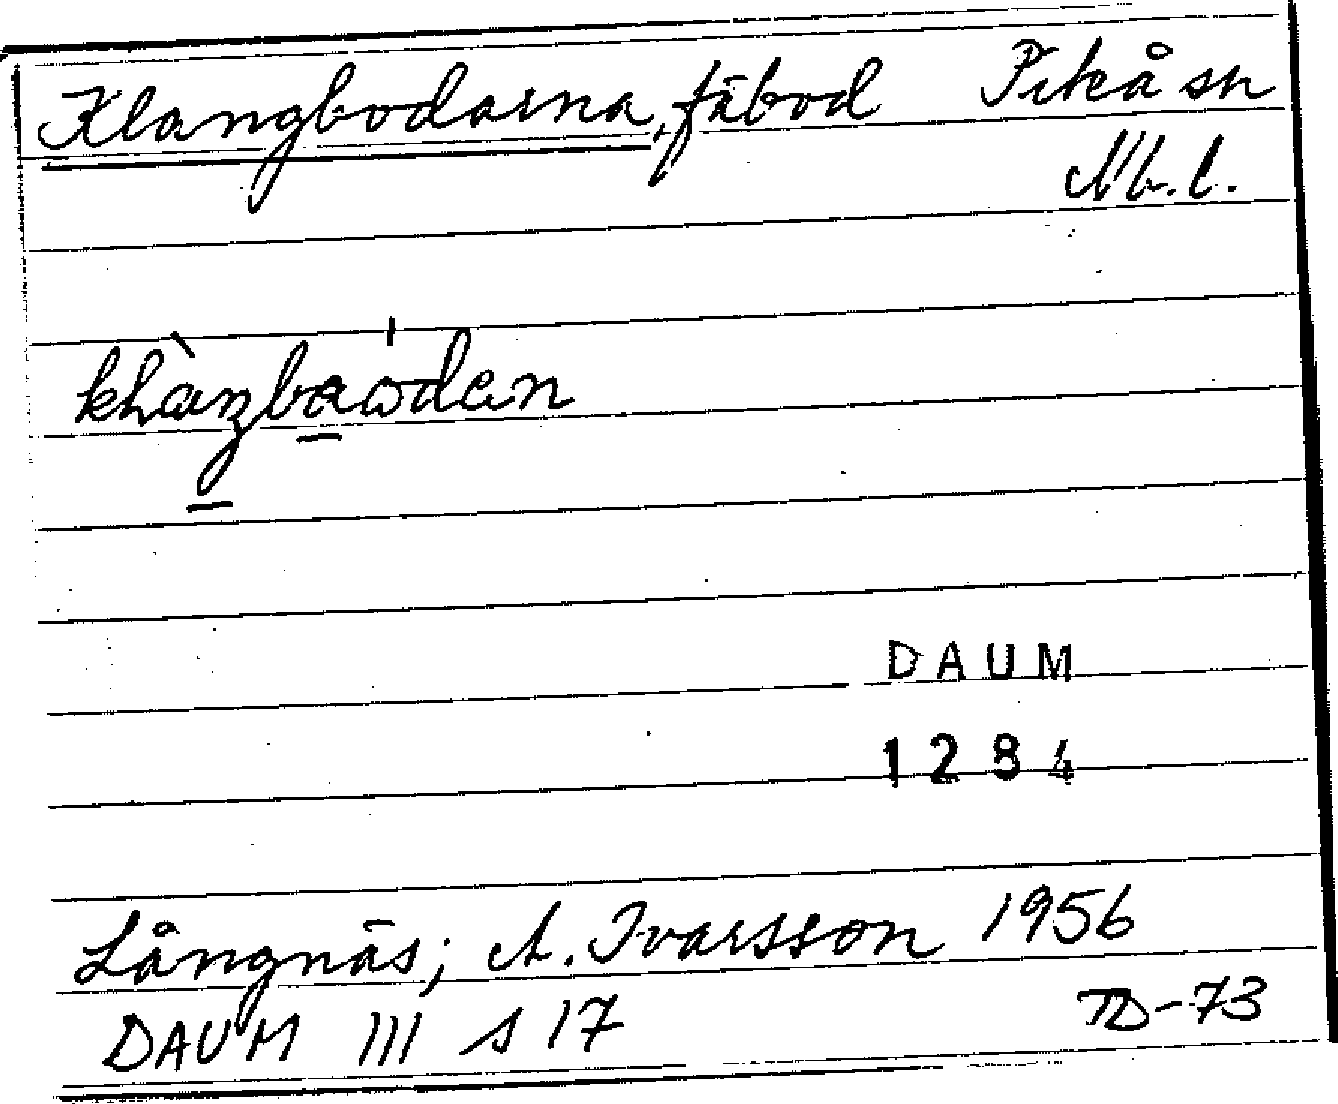 Klangbodarna, fäbod Piteå sn
Nb. l.
khàŋbaωden
DAUM
1284
Långnäs; A. Ivarsson 1956
DAUM III s 17 TD-73